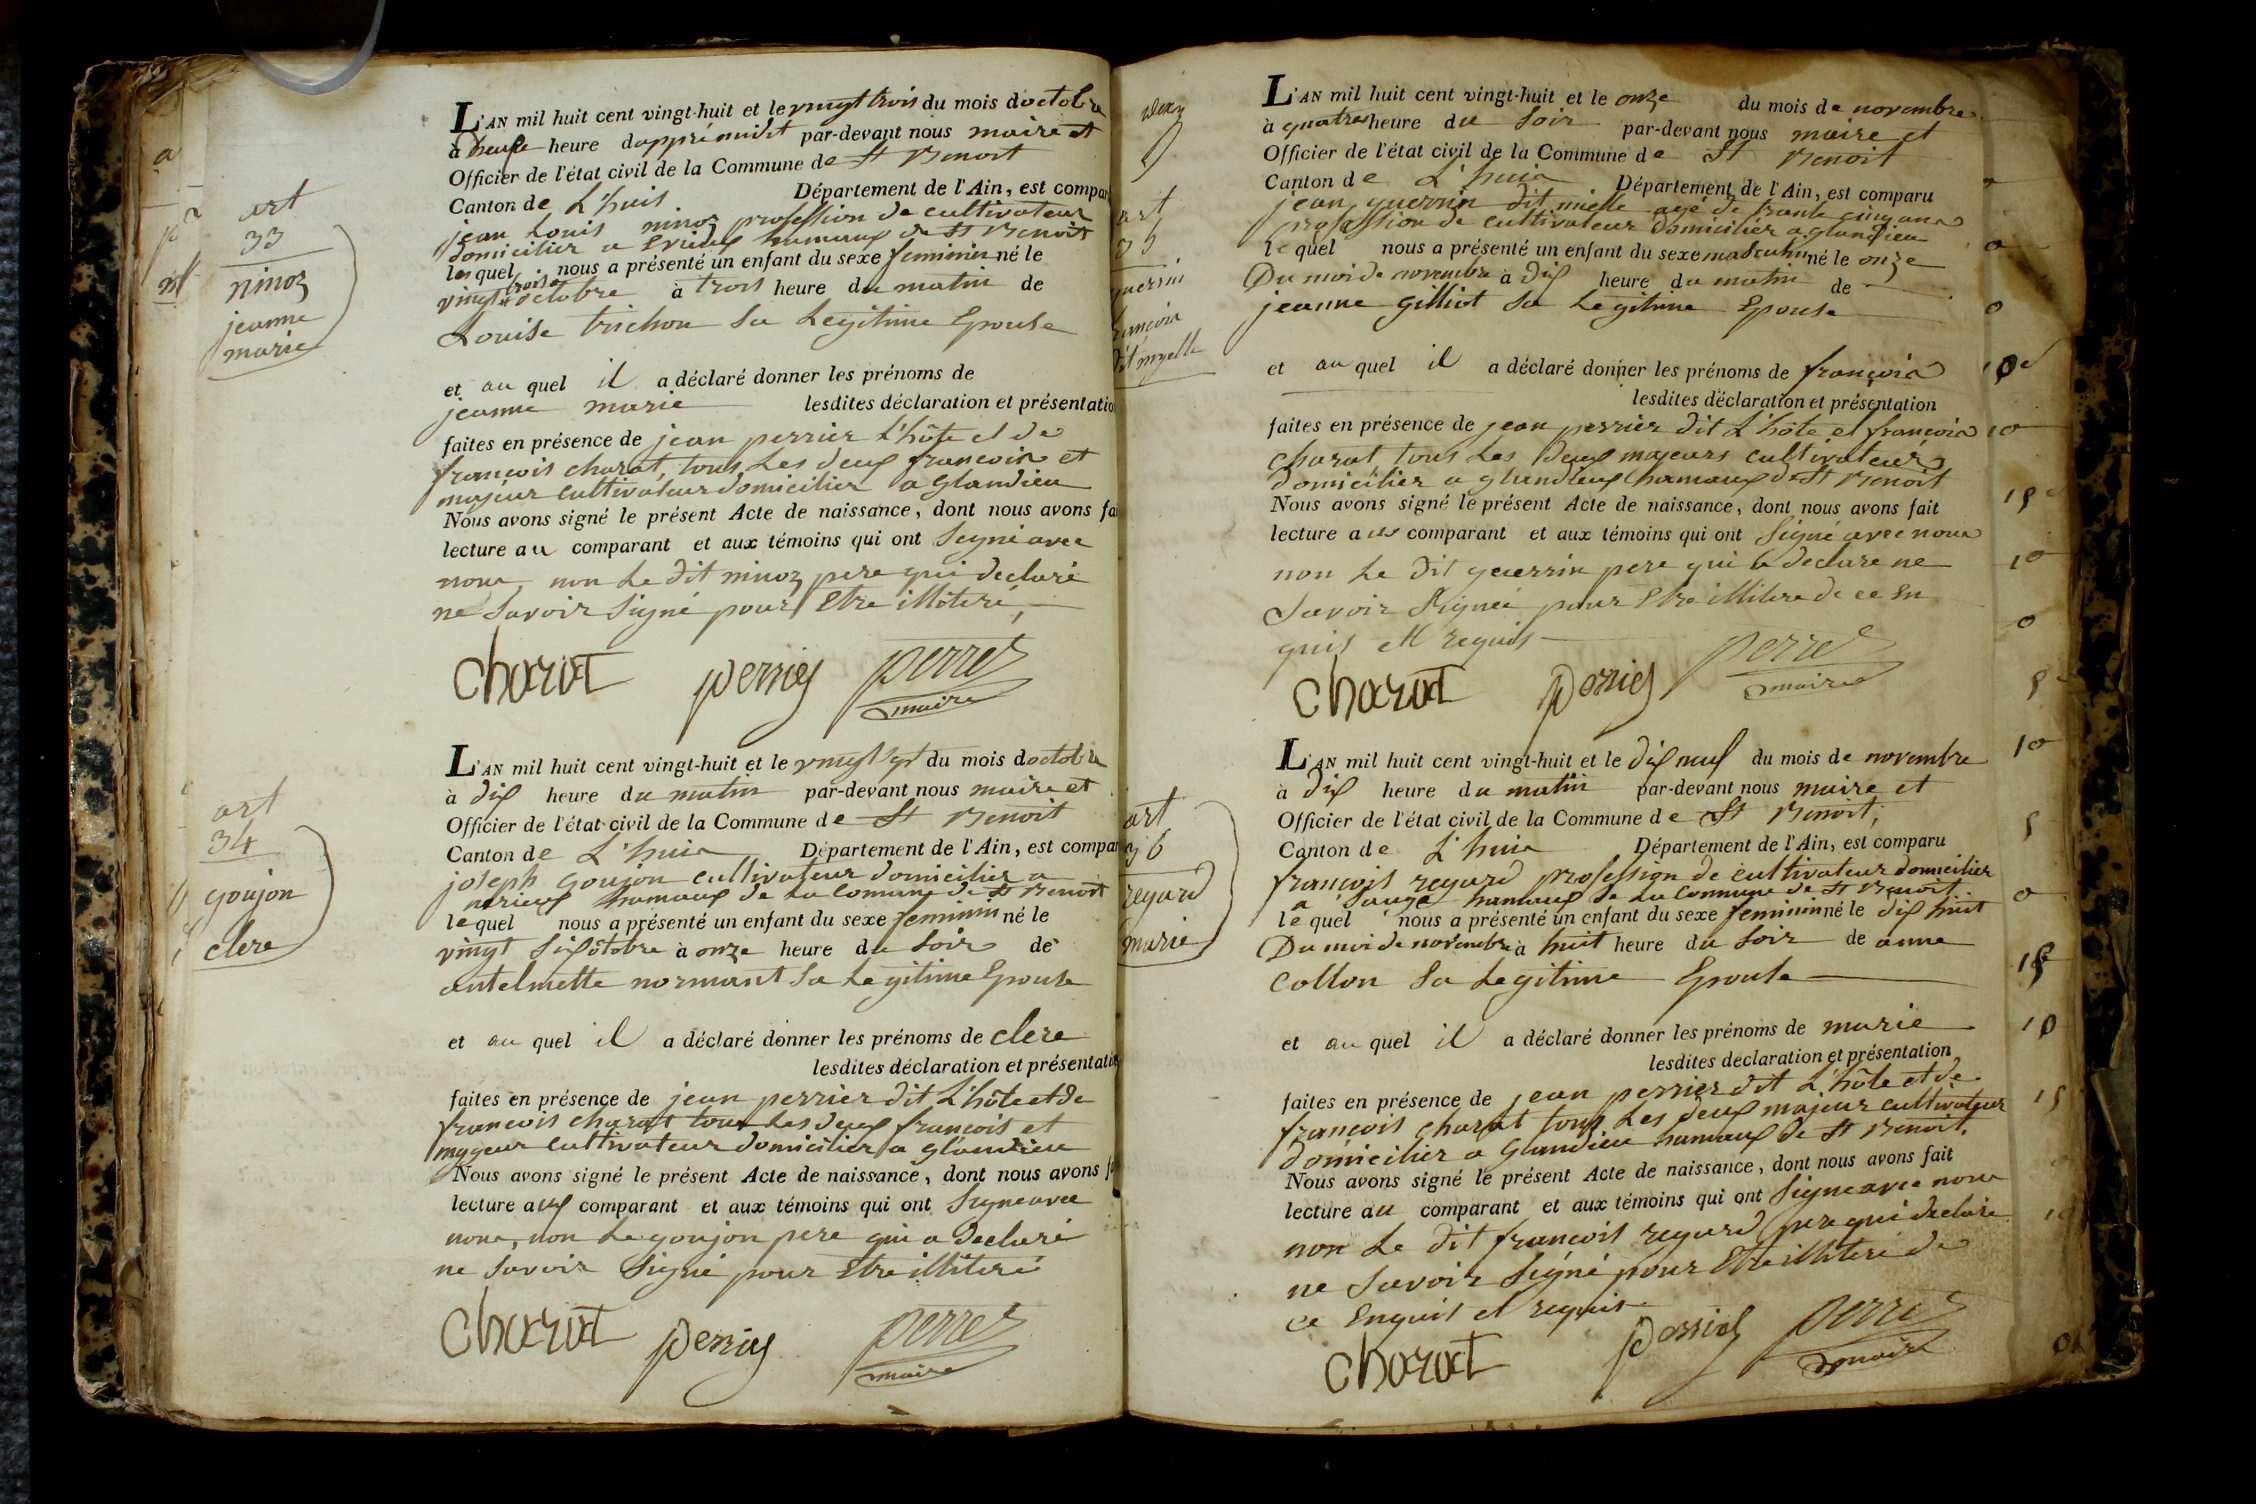 art
33
ninoz
jeanne
marie
L'AN mil huit cent vingt-huit et le vingt trois du mois doctobre
à heure dapprémidit par-devant nous maire et
Officier de l'état civil de la Commune de St Benoit
Canton de L'huis Département de l'Ain, est compar
jean Louis ninoz profession de cultivateur
domicilier a Evrieux hamaux de St Benoit
lesquel nous a présenté un enfant du sexe feminin né le
vingt trois octobre à trois heure du matin de
Louise trichon Sa Legitime Epouse
et au quel il a déclaré donner les prénoms de
jeanne marie lesdites déclaration et présentatio
faites en présence de jean perrier L'hôte et de
francois charat, tous Les deux francois et
majeur cultivateur domicilier a Glandieu
Nous avons signé le présent Acte de naissance, dont nous avons fai
lecture au comparant et aux témoins qui ont Signé avec
nous, non Le dit ninoz pere qui declaré
ne Savoir Signé pour Etre illiteré,
Charat perrier perret
maire
art
34
goujon
clere
L'AN mil huit cent vingt-huit et le vingt sept du mois doctobre
à dix heure du matin par-devant nous maire et
Officier de l'état civil de la Commune de St Benoit
Canton de L'huis Département de l'Ain, est compar
joseph Goujon cultivateur domicilier a
hamaux de La Comune de St Benoit
lequel nous a présenté un enfant du sexe feminin né le
vingt Six octobre à onze heure du Soir de
antelmette normant Sa Legitime Epouse
et au quel il a déclaré donner les prénoms de clere
lesdites déclaration et présentatio
faites en présence de jean perrier dit L'hôte et de
francois charat tous Les deux francois et
mageur cultivateur domicilier a glandieu
Nous avons signé le présent Acte de naissance, dont nous avons f
lecture aux comparant et aux témoins qui ont Signe avec
nous, non Le goujon pere qui a declaré
ne Savoir Signé pour Etre illiteré
Charat perrier perret
maire
art
35
guerrin
francois
dit myelle
L'AN mil huit cent vingt-huit et le onze du mois de novembre
à quatres heure du Soir par-devant nous maire et
Officier de l'état civil de la Commune de St Benoit
Canton de L'huis Département de l'Ain, est comparu
jean guerrin dit mielle agé de trante cinq ans
profession de cultivateur domicilier a glandieu
lequel nous a présenté un enfant du sexe masculin né le onze
Du mois de novembre à dix heure du matin de
jeanne Gilliot Sa Legitime Epouse
et au quel il a déclaré donner les prénoms de francois
lesdites déclaration et présentation
faites en présence de jean perrier dit L'hôte et francois
charat tous Les deux majeurs cultivateurs
domicilier a glandieux hamaux de St Benoit
Nous avons signé le présent Acte de naissance, dont nous avons fait
lecture aux comparant et aux témoins qui ont Signé avec nous
non Le dit guerrin pere qui a declare ne
Savoir Signée pour Etre illitere de ce En
quis et requis
Charat perrier perret
maire
art
36
regard
marie
L'AN mil huit cent vingt-huit et le dix neuf du mois de novembre
à dix heure du matin par-devant nous maire et
Officier de l'état civil de la Commune de St Benoit,
Canton de L'huis Département de l'Ain, est comparu
françois regard profession de cultivateur domicilier
a Sauge hamaux de La Commune de St Benoit
lequel nous a présenté un enfant du sexe feminin né le dix huit
Du moi de novembre à huit heure du Soir de anne
Collon Sa Legitime Epouse
et au quel il a déclaré donner les prénoms de marie
lesdites declaration et présentation
faites en présence de jean perrier dit L'hôte et de
françois charat tous Les deux majeur cultivateur
domicilier a Glandieu hamaux de St Benoit.
Nous avons signé le présent Acte de naissance, dont nous avons fait
lecture au comparant et aux témoins qui ont Signe avec nous
non Le dit francois regard pere qui declare
ne Savoir Signé pour Etre illiteré de
ce Enquis et requis
Charat perrier perret
maire